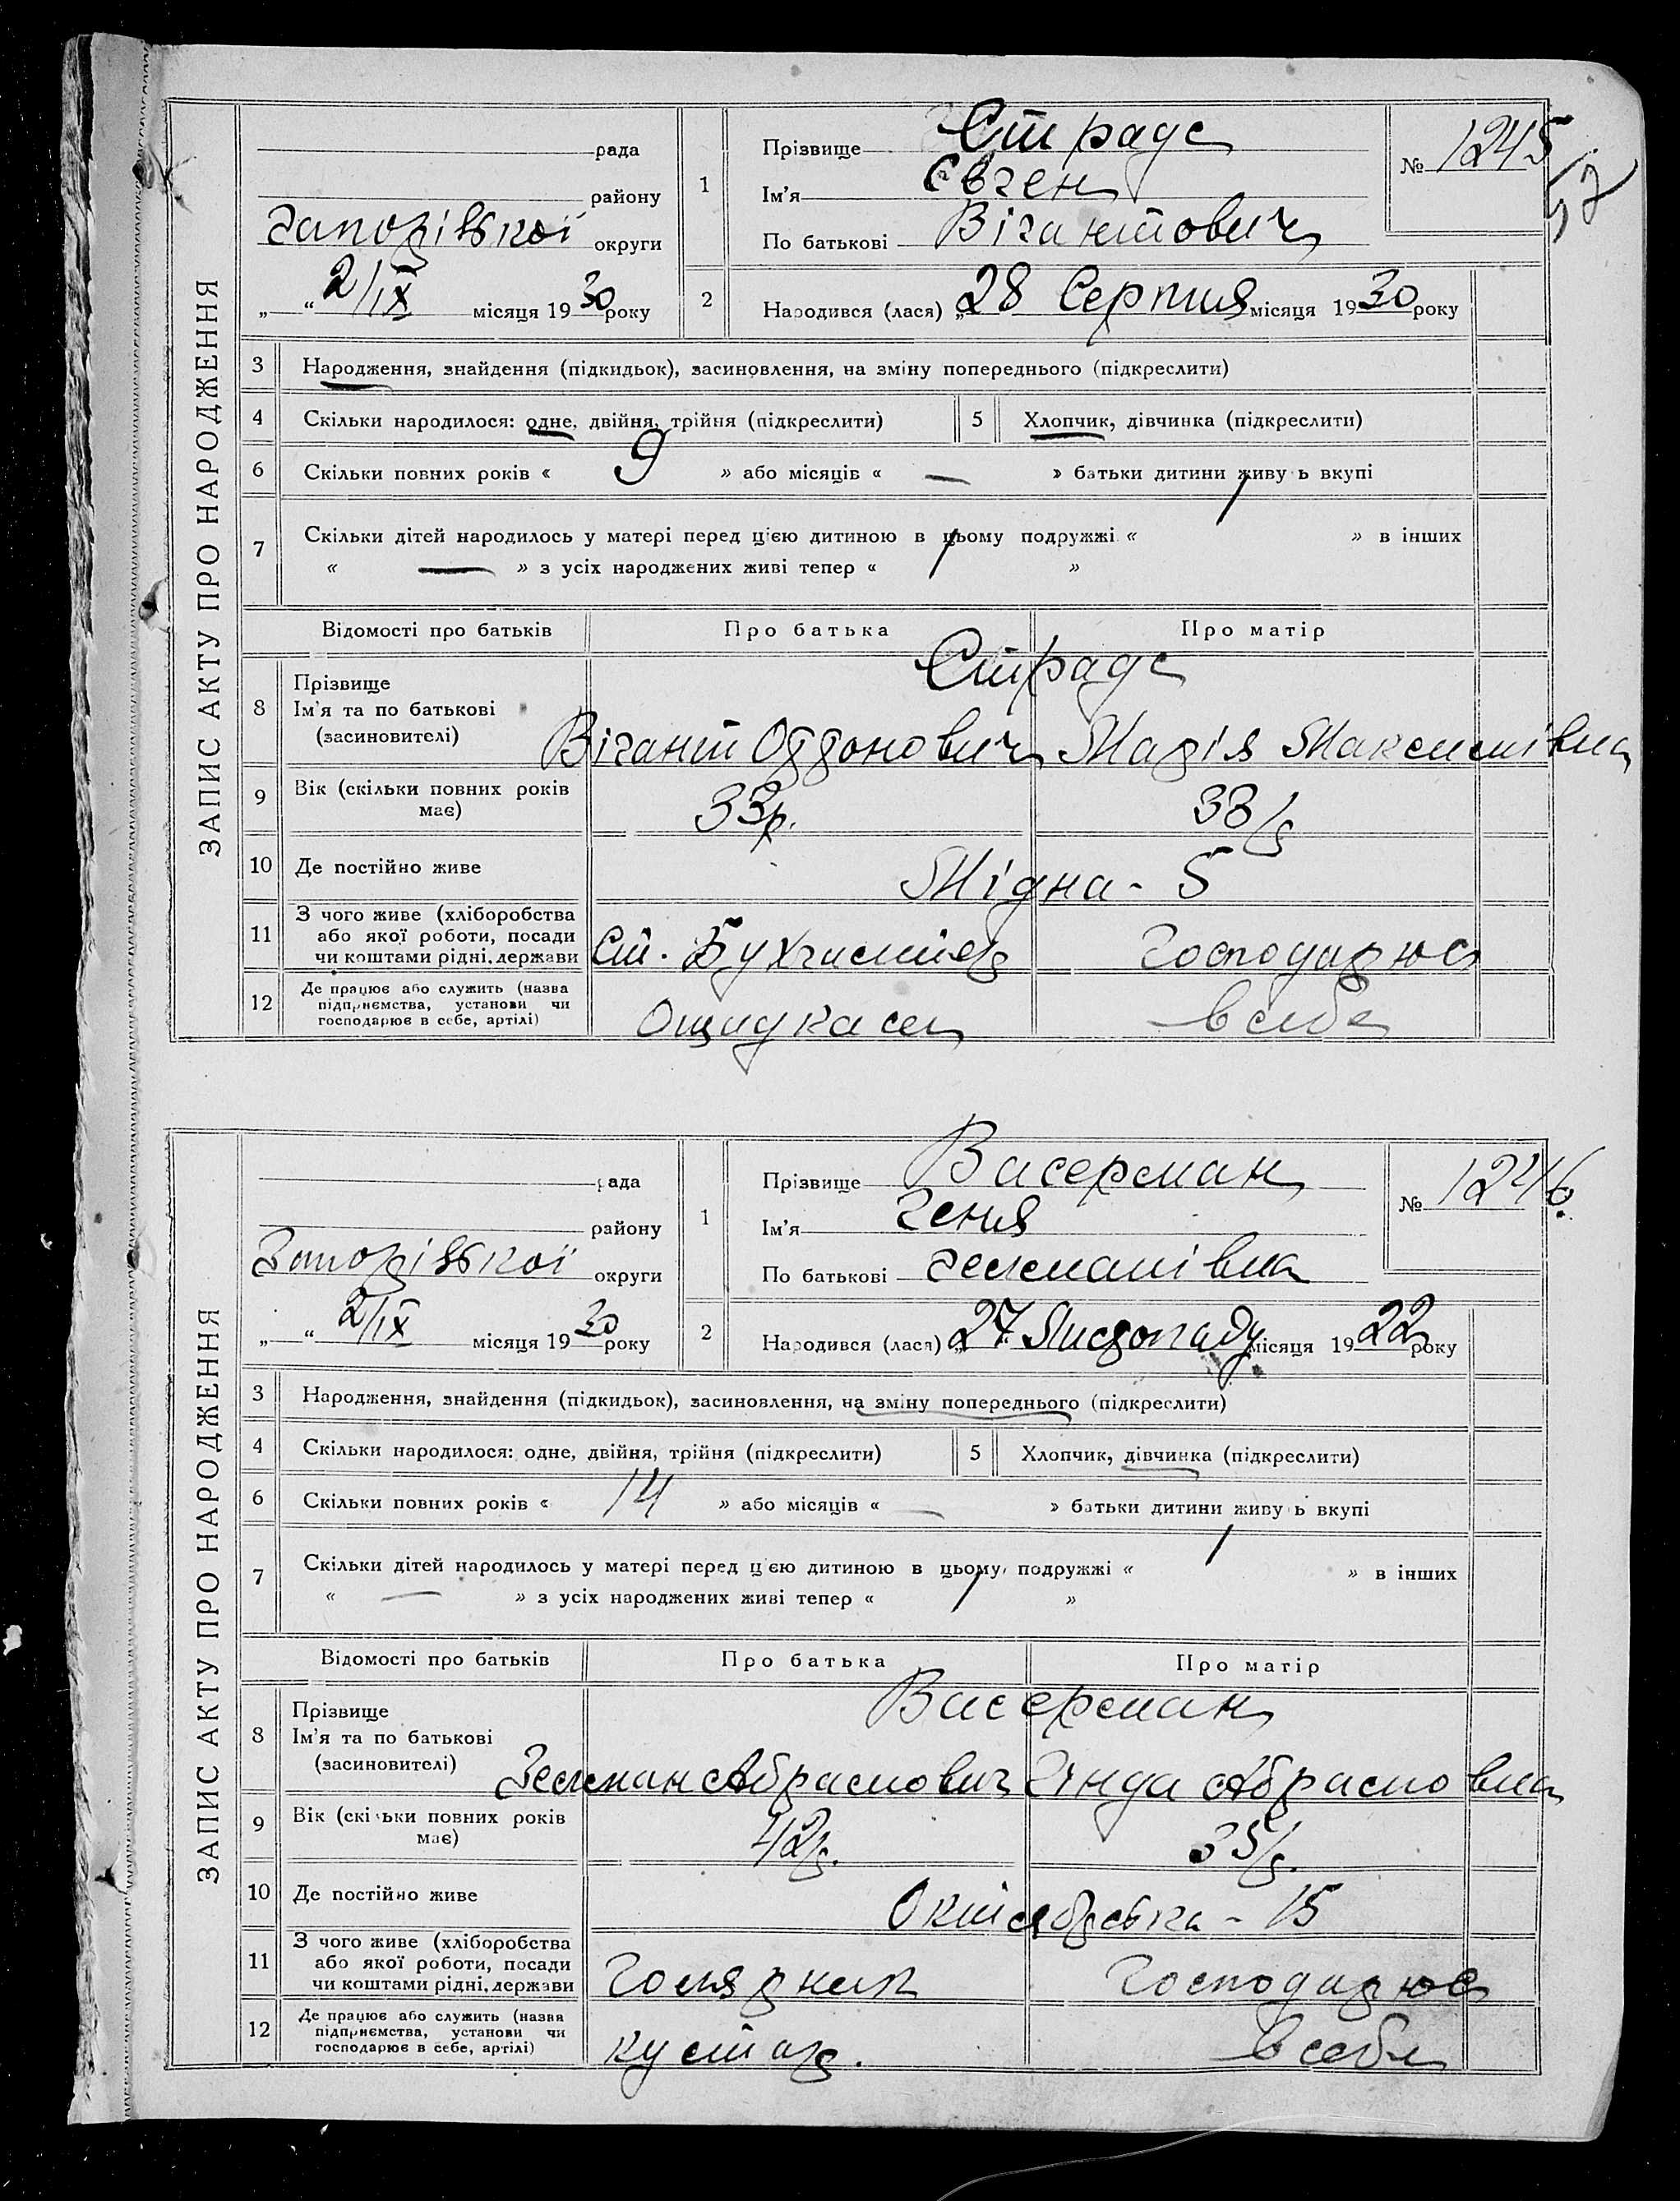 ЗАПИС АКТУ ПРО НАРОДЖЕННЯ
рада
району
Запорізької округи
„ “ 2/IX місяця 1930 року
1 Прізвище Страде
Ім'я Євген
По батькові Вігантович
№ 1245
57
2 Народився (лася) „28 Серпня місяця 1930 року
3 Народження, знайдення (підкидьок), засиновлення, на зміну попереднього (підкреслити)
4 Скільки народилося: одне, двійня, трійня (підкреслити) 5 Хлопчик, дівчинка (підкреслити)
6 Скільки повних років « 9 » або місяців « — » батьки дитини живу ь вкупі
7 Скільки дітей народилось у матері перед цією дитиною в цьому подружжі « 1 » в інших
« — » з усіх народжених живі тепер « 1 »
Відомості про батьків Про батька Про матір
8 Прізвище
Ім'я та по батькові
(засиновителі)
Страде
Вігант Оддонович Марія Максимівна
9 Вік (скільки повних років має) 33р. 33/р
10 Де постійно живе Мідна - 5
11 З чого живе (хліборобства
або якої роботи, посади
чи коштами рідні, держави
Ст. Бухгалтер Господарює
12 Де працює або служить (назва
підприємства, установи чи
господарює в себе, артілі)
Ощадкаса в себе
ЗАПИС АКТУ ПРО НАРОДЖЕННЯ
рада
району
Запорізької округи
„ “ 2/IX місяця 1930 року
1 Прізвище Васерман
Ім'я Геня
По батькові Зелманівна
№ 1246.
2 Народився (лася) „27 Листопаду місяця 1922 року
3 Народження, знайдення (підкидьок), засиновлення, на зміну попереднього (підкреслити)
4 Скільки народилося: одне, двійня, трійня (підкреслити) 5 Хлопчик, дівчинка (підкреслити)
6 Скільки повних років « 14 » або місяців « — » батьки дитини живу ь вкупі
7 Скільки дітей народилось у матері перед цією дитиною в цьому подружжі « 1 » в інших
« — » з усіх народжених живі тепер « 1 »
Відомості про батьків Про батька Про матір
8 Прізвище
Ім'я та по батькові
(засиновителі)
Васерман
Зелман Абрамович Гінда Абрамовна
9 Вік (скільки повних років має) 42р. 35/р.
10 Де постійно живе Октябрська - 15
11 З чого живе (хліборобства
або якої роботи, посади
чи коштами рідні, держави
Господарює
12 Де працює або служить (назва
підприємства, установи чи
господарює в себе, артілі)
кустар. в себе